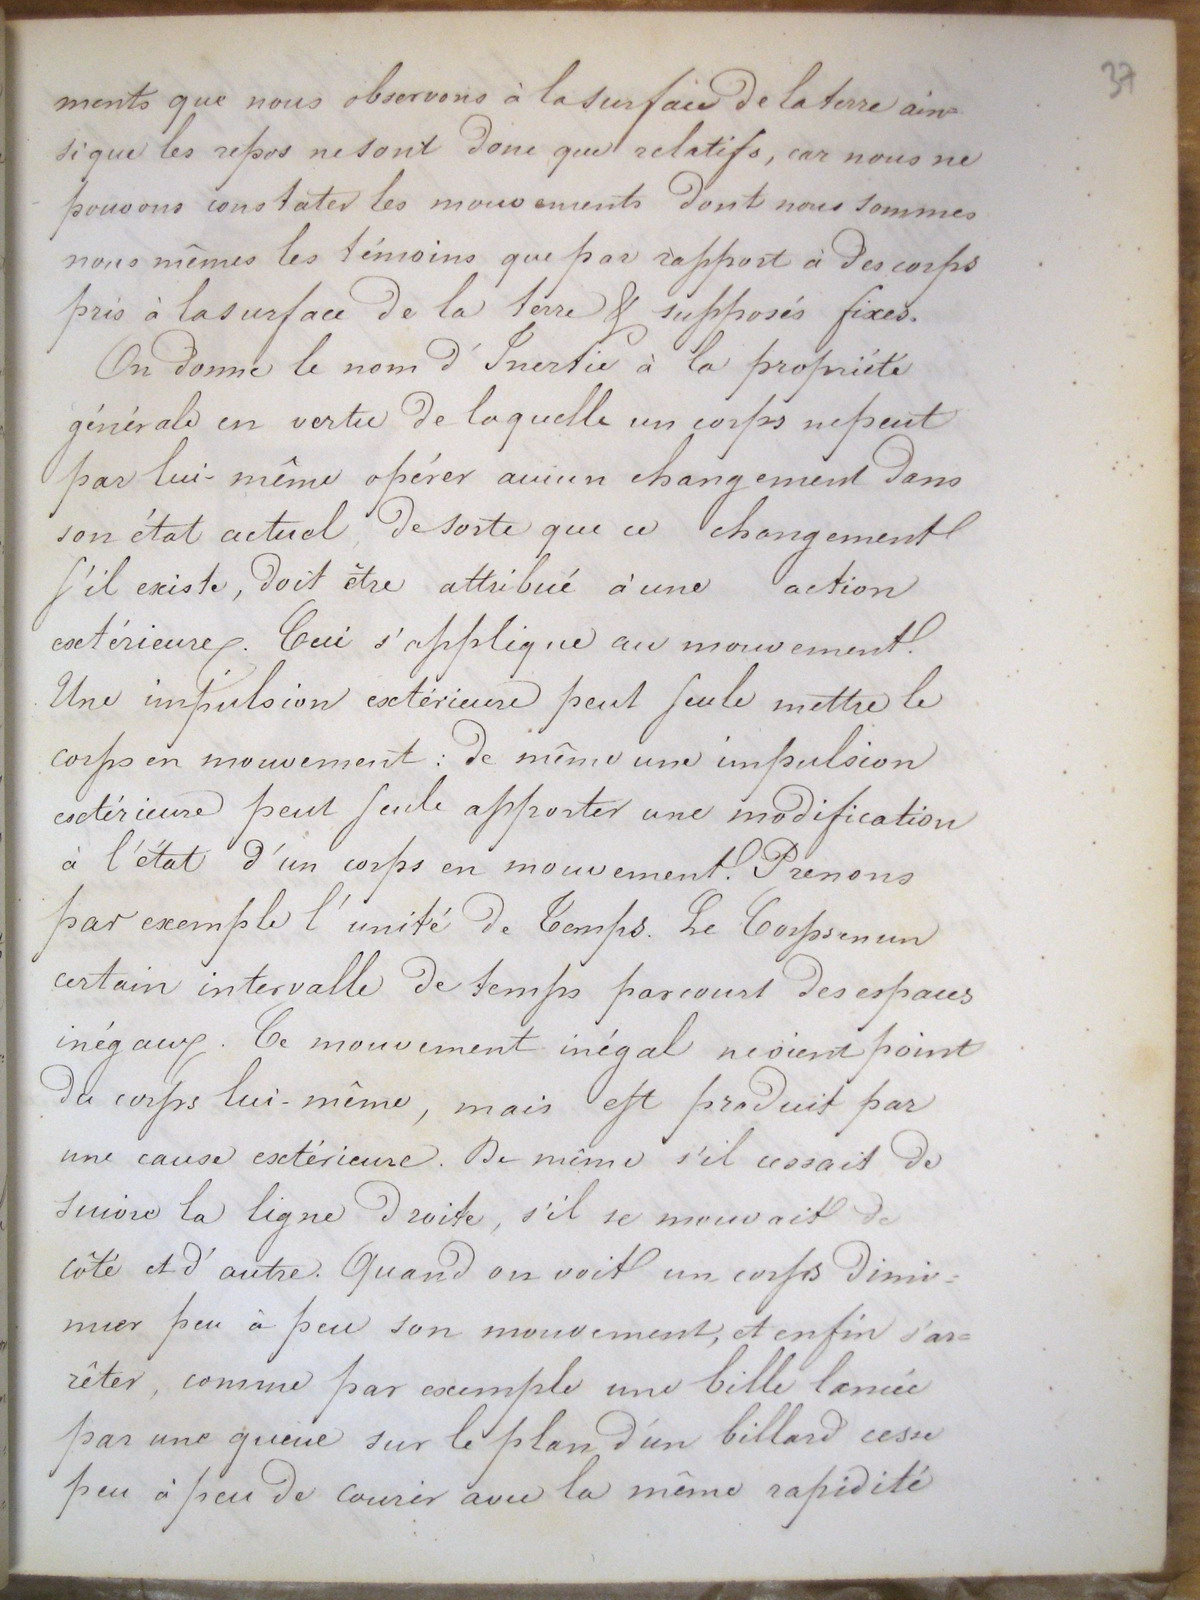 37
ments que nous observons à la surface de la terre ain=
si que les repos ne sont donc que relatifs, car nous ne
pouvons constater les mouvements dont nous sommes
nous mêmes les témoins que par rapport à des corps
pris à la surface de la terre & supposés fixes.
On donne le nom d'Inertie à la propriété
générale en vertu de laquelle un corps ne peut
par lui-même opérer aucun changement dans
son état actuel, de sorte que ce changement
s'il existe, doit être attribué à une action
extérieure. Ceci s'applique au mouvement.
Une impulsion extérieure peut seule mettre le
corps en mouvement : de même une impulsion
extérieure peut seule apporter une modification
à l'état d'un corps en mouvement. Prenons
par exemple l'unité de Temps. Le Corps en un
certain intervalle de temps parcourt des espaces
inégaux. Ce mouvement inégal ne vient point
du corps lui-même, mais est produit par
une cause extérieure. De même s'il cessait de
suivre la ligne droite, s'il se mouvait de
côté et d'autre. Quand on voit un corps dimi=
nuer peu à peu son mouvement, et enfin s'ar=
rêter, comme par exemple une bille lancée
par une queue sur le plan d'un billard cesse
peu à peu de courir avec la même rapidité